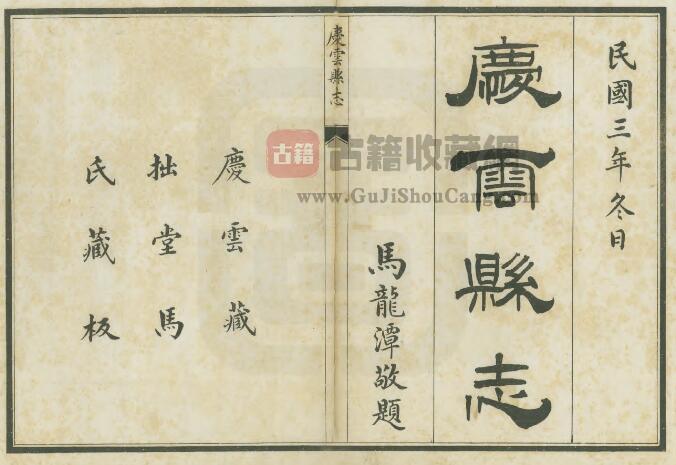 民國三年冬日
慶雲縣志
馬龍潭敬題
慶雲縣志
慶雲藏
拙堂馬
氏藏板
古籍 古籍收藏網
www.GuJiShouCang.com